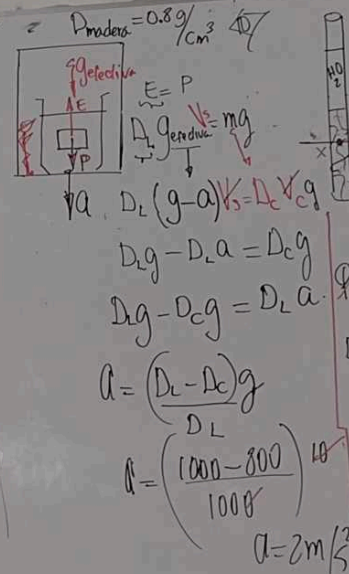 D madera = 0.8 g/cm³
g efectiva
E
P
a
E = P
D_L g efectiva V_s = mg
D_L (g-a) V_s = D_C V_C g
D_L g - D_L a = D_C g
D_L g - D_C g = D_L a
a = (D_L - D_C) g
D_L
a = (1000 - 800) 10
1000
a = 2 m/s²
H2O
x